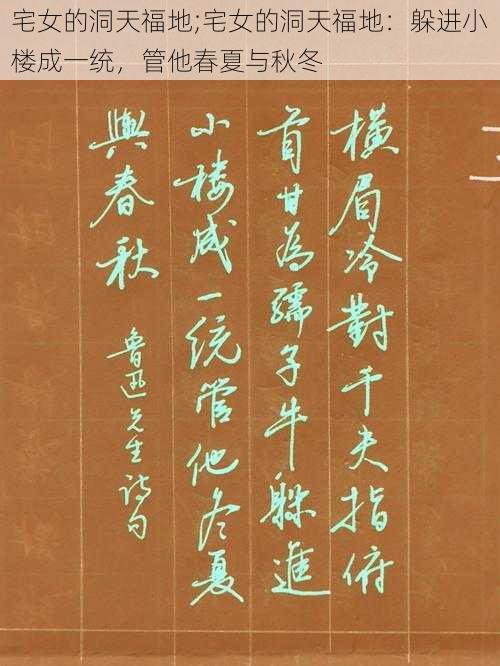 宅女的洞天福地;宅女的洞天福地：躲进小
楼成一统，管他春夏与秋冬
橫眉冷對千夫指俯
首甘为孺子牛躲進
小楼成一统管他冬夏
與春秋
鲁迅先生诗句